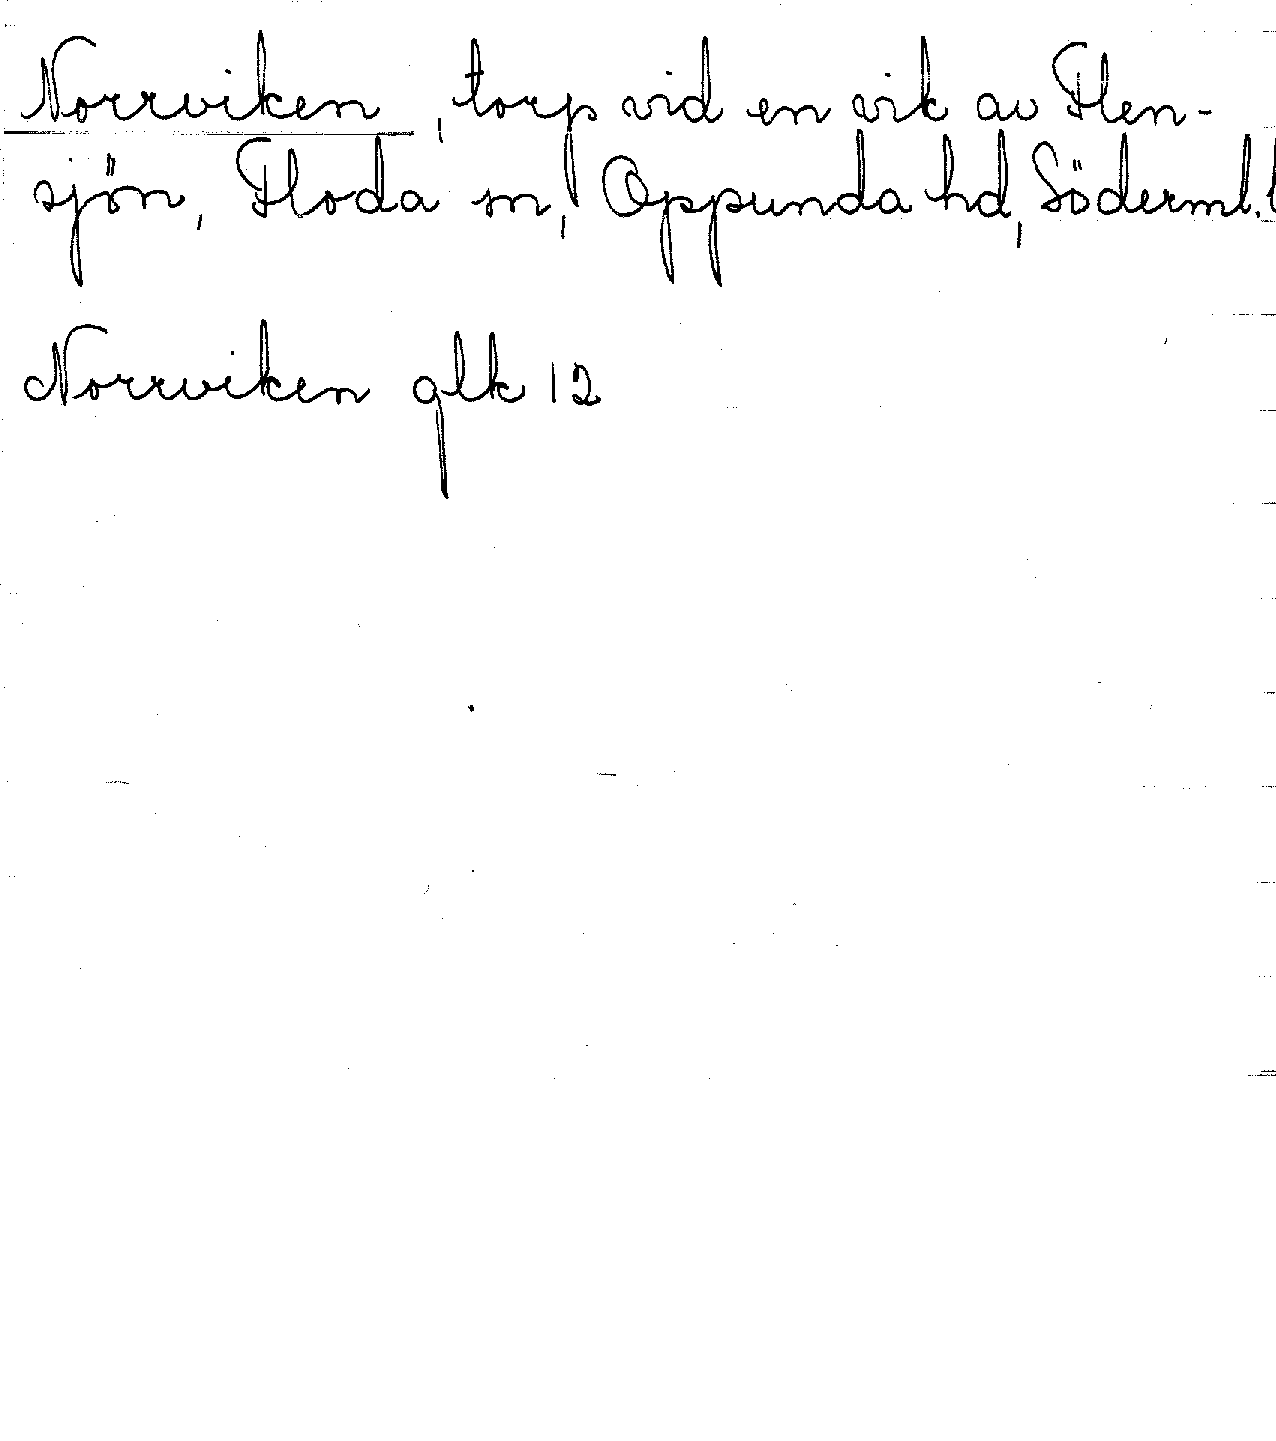 Norrviken, torp vid en vik av Flen-
sjön, Floda sn, Oppunda hd, Söderml. l
Norrviken glk 12